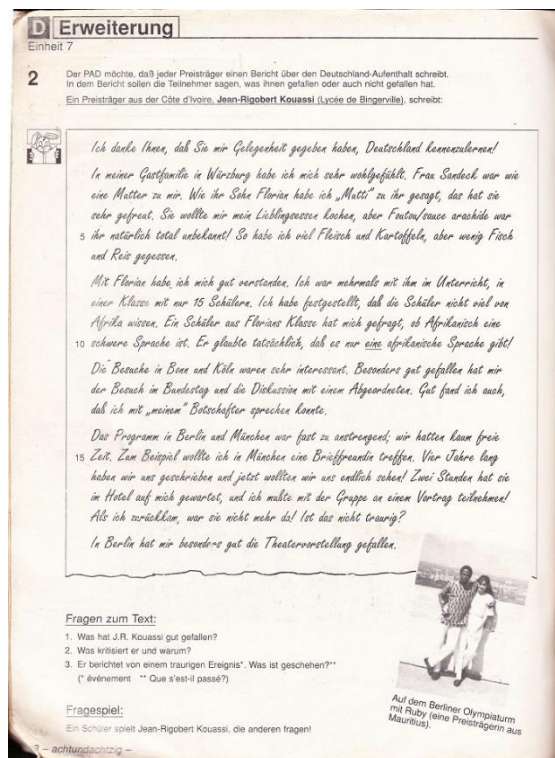 D Erweiterung
Einheit 7
2
Der PAD möchte, daß jeder Preisträger einen Bericht über den Deutschland-Aufenthalt schreibt.
In dem Bericht sollen die Teilnehmer sagen, was ihnen gefallen oder auch nicht gefallen hat.
Ein Preisträger aus der Côte d'Ivoire, Jean-Rigobert Kouassi (Lycée de Bingerville), schreibt:
Ich danke Ihnen, daß Sie mir Gelegenheit gegeben haben, Deutschland kennenzulernen!
In meiner Gastfamilie in Würzburg habe ich mich sehr wohlgefühlt. Frau Sandeck war wie
eine Mutter zu mir. Wie ihr Sohn Florian habe ich „Mutti" zu ihr gesagt, das hat sie
sehr gefreut. Sie wollte mir mein Lieblingsessen kochen, aber Foutou/sauce arachide war
5 ihr natürlich total unbekannt! So habe ich viel Fleisch und Kartoffeln, aber wenig Fisch
und Reis gegessen.
Mit Florian habe ich mich gut verstanden. Ich war mehrmals mit ihm im Unterricht, in
einer Klasse mit nur 15 Schülern. Ich habe festgestellt, daß die Schüler nicht viel von
Afrika wissen. Ein Schüler aus Florians Klasse hat mich gefragt, ob Afrikanisch eine
10 schwere Sprache ist. Er glaubte tatsächlich, daß es nur eine afrikanische Sprache gibt!
Die Besuche in Bonn und Köln waren sehr interessant. Besonders gut gefallen hat mir
der Besuch im Bundestag und die Diskussion mit einem Abgeordneten. Gut fand ich auch,
daß ich mit „meinem" Botschafter sprechen konnte.
Das Programm in Berlin und München war fast zu anstrengend; wir hatten kaum freie
15 Zeit. Zum Beispiel wollte ich in München eine Brieffreundin treffen. Vier Jahre lang
haben wir uns geschrieben und jetzt wollten wir uns endlich sehen! Zwei Stunden hat sie
im Hotel auf mich gewartet, und ich mußte mit der Gruppe an einem Vortrag teilnehmen!
Als ich zurückkam, war sie nicht mehr da! Ist das nicht traurig?
In Berlin hat mir besonders gut die Theatervorstellung gefallen.
Fragen zum Text:
1. Was hat J.R. Kouassi gut gefallen?
2. Was kritisiert er und warum?
3. Er berichtet von einem traurigen Ereignis*. Was ist geschehen?**
(* événement ** Que s'est-il passé?)
Fragespiel:
Ein Schüler spielt Jean-Rigobert Kouassi, die anderen fragen!
Auf dem Berliner Olympiaturm
mit Ruby (eine Preisträgerin aus
Mauritius).
– achtundachtzig –